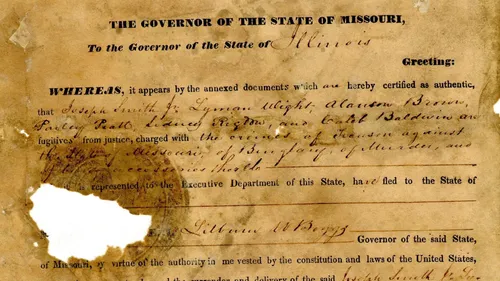 THE GOVERNOR OF THE STATE OF MISSOURI,
To the Governor of the State of Illinois
Greeting:
WHEREAS, it appears by the annexed documents which are hereby certified as authentic,
that Joseph Smith Jr, Lyman Wight, Alanson Brown,
Parley Pratt, Sidney Rigdon, and Caleb Baldwin are
fugitives from justice, charged with the crimes of Treason against
the State of Missouri, of Burglary, of Murder, and
it is represented to the Executive Department of this State, have fled to the State of
Lilburn W Boggs Governor of the said State,
of Missouri, by virtue of the authority in me vested by the constitution and laws of the United States,
the surrender and delivery of the said Joseph Smith Jr